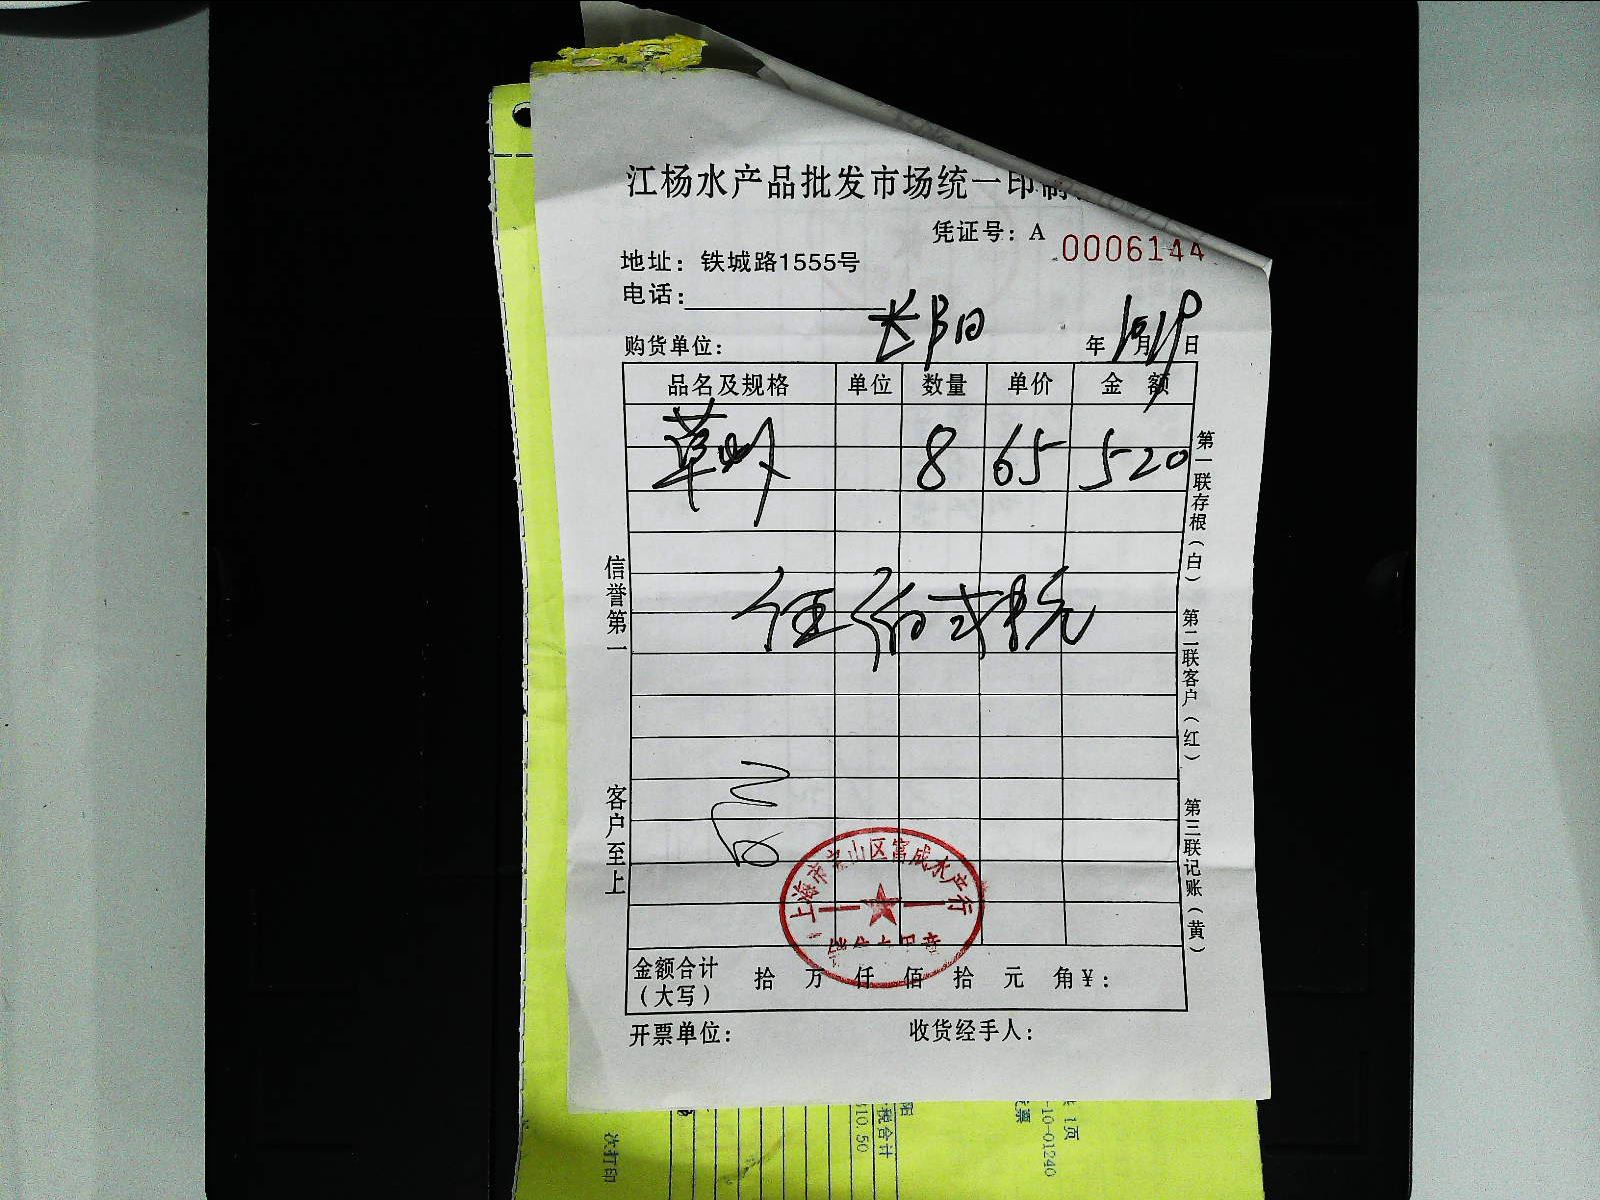 江杨水产品批发市场统一印制
凭证号：A 0006144
地址：铁城路1555号
电话：
购货单位： 长阳 年 10月19日
品名及规格 单位 数量 单价 金 额
草虾 8 65 520
伍佰贰拾元
信誉第一
客户至上
第一联存根（白）
第二联客户（红）
第三联记账（黄）
上海市宝山区富成水产行
金额合计（大写） 拾 万 仟 佰 拾 元 角 ¥：
开票单位： 收货经手人：
次打印
10.50
税合计
阳
票
10-01240
1页